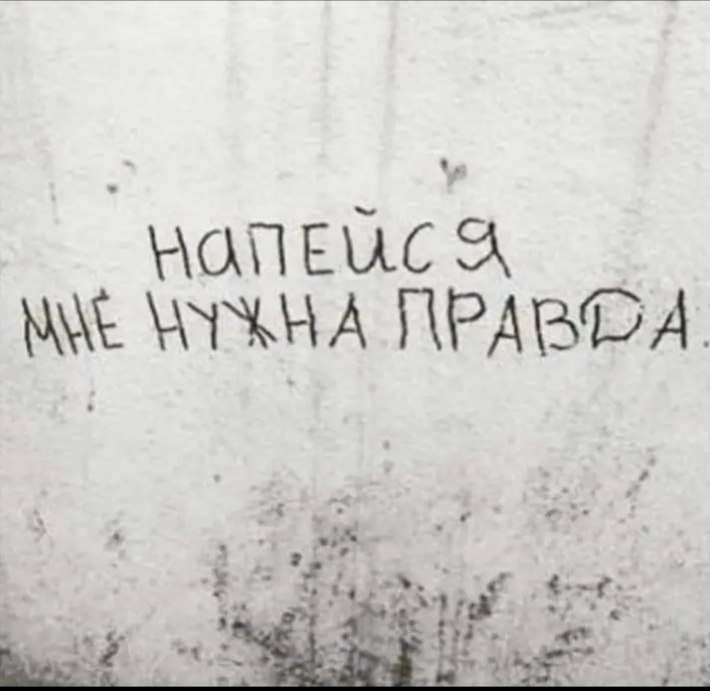 НАПЕЙСЯ
МНЕ НУЖНА ПРАВДА.